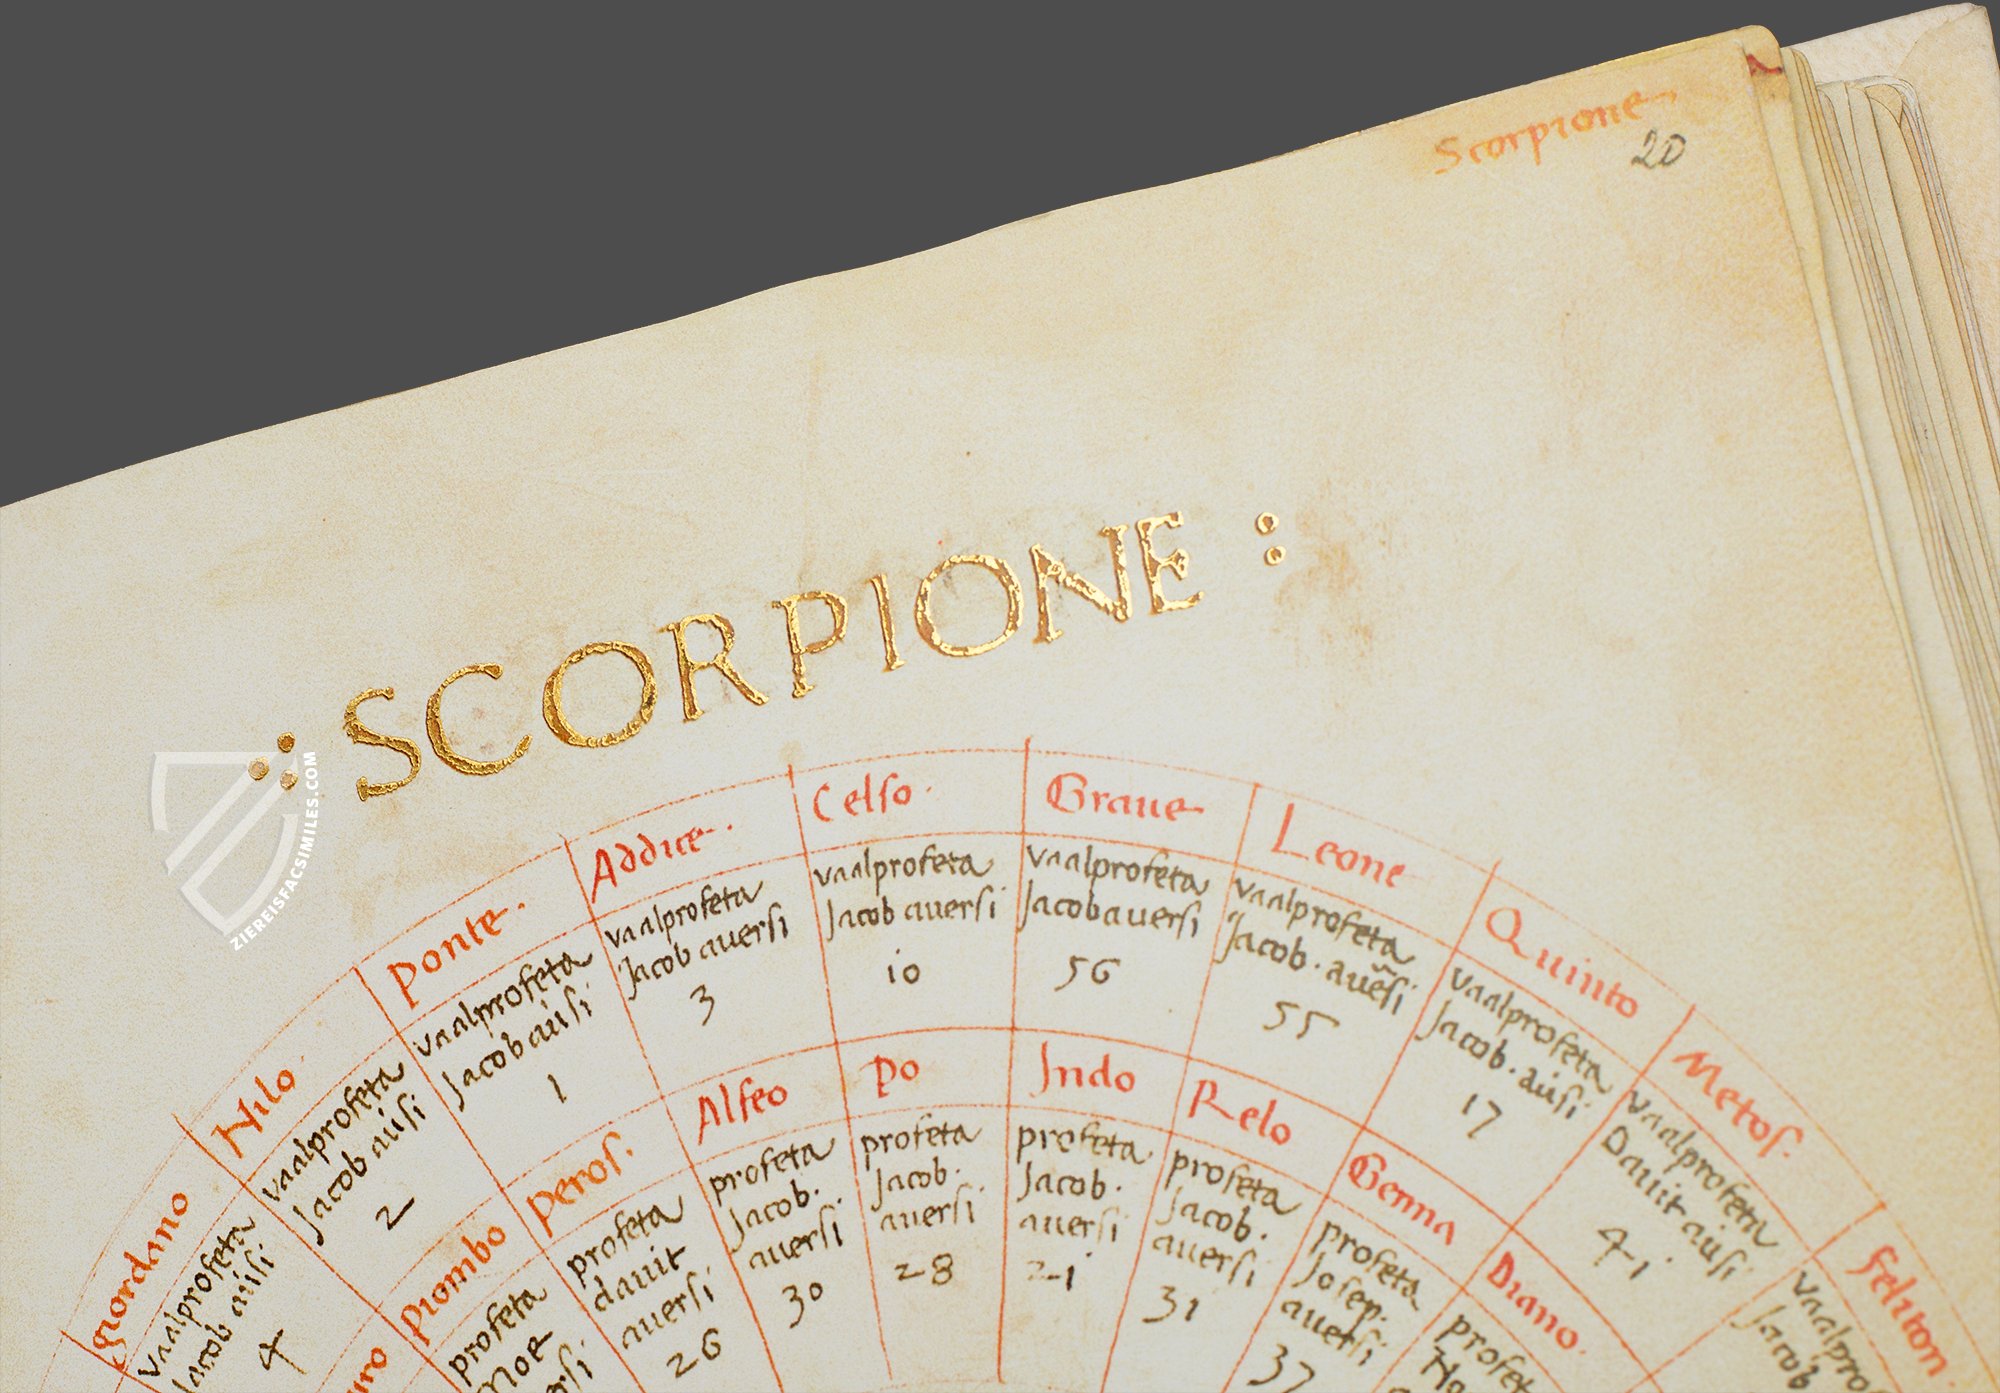 Scorpione
20
: SCORPIONE :
ZIEREISFACSIMILES.COM
giordano
vaalprofeta
Jacob auisi
4
Nilo
vaalprofeta
Jacob auisi
2
ponte.
vaalprofeta
Jacob auisi
1
Addice.
vaalprofeta
Jacob auersi
3
Celso.
vaalprofeta
Jacob auersi
10
Graue
vaalprofeta
Jacob auersi
56
Leone
vaalprofeta
Jacob. auēsi
55
Quinto
vaalprofeta
Jacob. auisi
17
Metos.
vaalprofeta
Dauit auisi
41
Feliton.
vaalpro
Jacob
uro
piombo
profeta
Noe
rsi
peros.
profeta
dauit
auersi
26
Alfeo
profeta
Jacob.
auersi
30
Po
profeta
Jacob.
auersi
28
Indo
profeta
Jacob.
auersi
21
Relo
profeta
Jacob.
auersi
31
Genna
profeta
Josep.
auersi
37
Diano.
profet
No